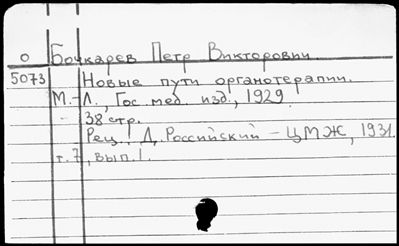 о Бочкарев Петр Викторович.
5073 Новые пути органотерапии.
М.-Л., Гос. мед. изд., 1929.
- 38 стр.
Рец.: Д. Российский - ЦМЖ, 1931.
т. 7, вып. 1.